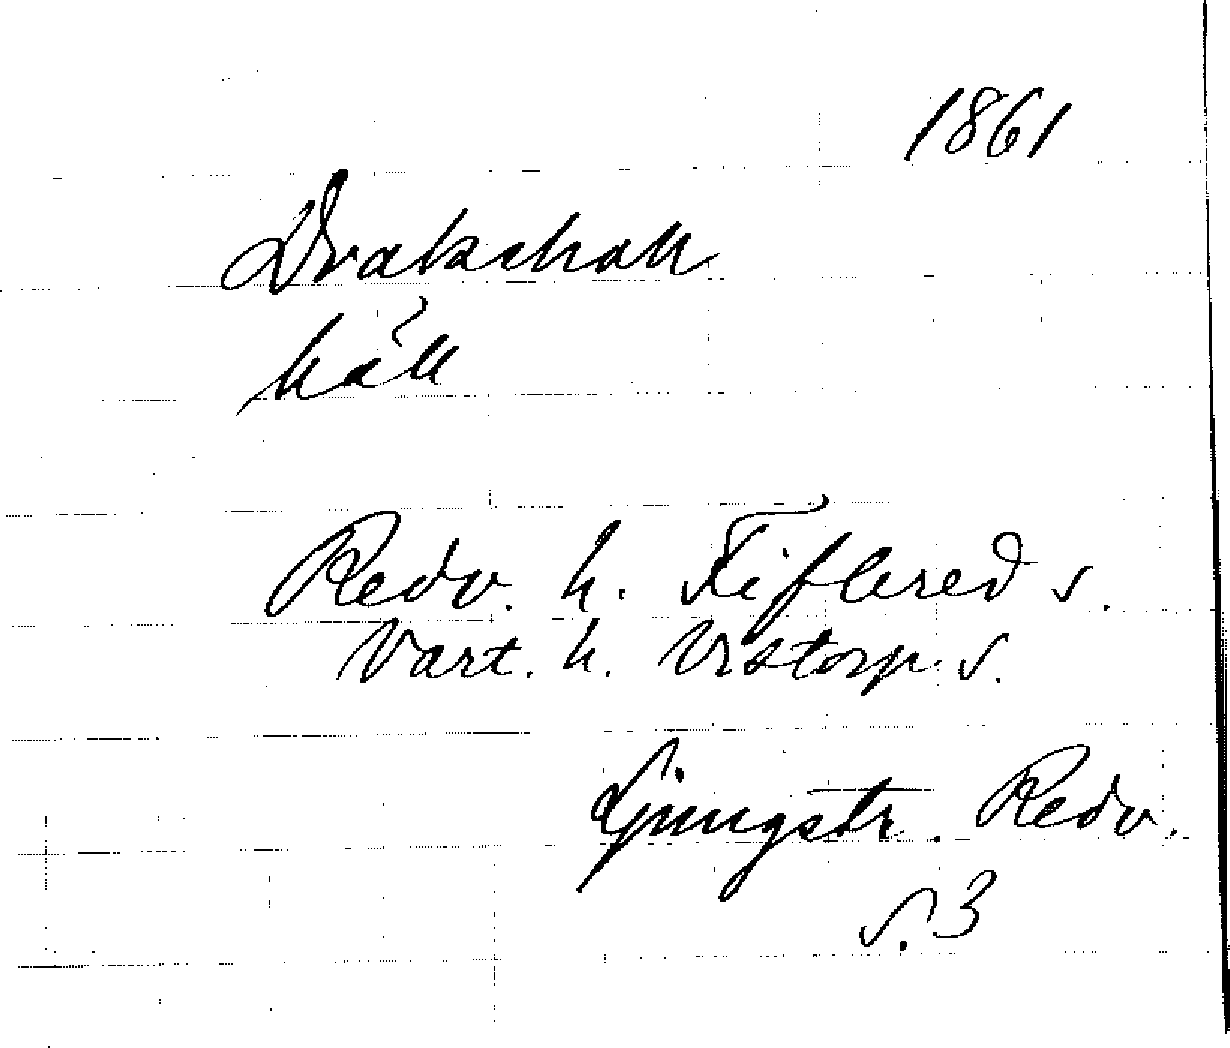 1861
Drakahall
häll
Redv. h. Fiflered s.
Vart. h. Vistorp s.
Ljungstr. Redv.
s. 3